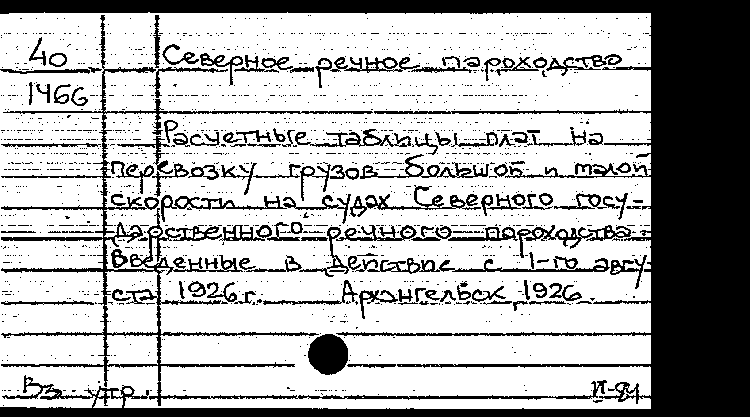 40
1466
Северное речное пароходство
Расчетные таблицы плат на
перевозку грузов большой и малой
скорости на судах Северного госу-
дарственного речного пароходства.
Введенные в действие с 1-го авгу
ста 1926 г. Архангельск, 1926.
Вз. утр.
VI-81